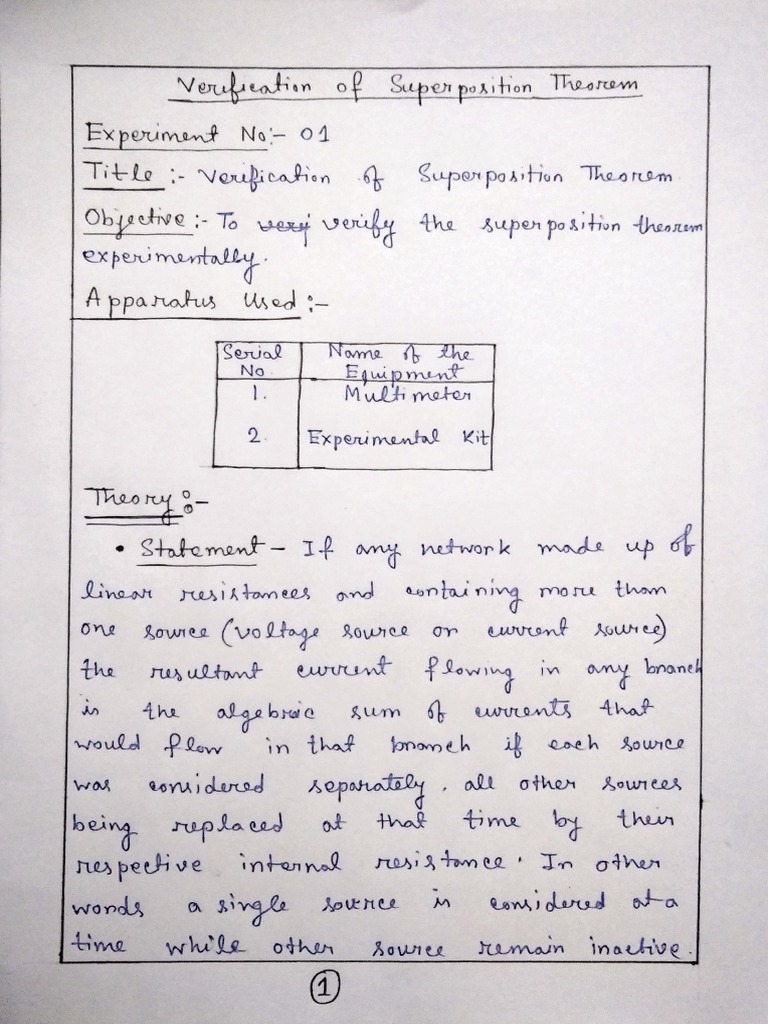 Verification of Superposition Theorem
Experiment No:- 01
Title :- Verification of Superposition Theorem
Objective :- To very verify the superposition theorem
experimentally.
Apparatus Used :-
Serial No. Name of the Equipment
1. Multimeter
2. Experimental Kit
Theory :-
• Statement - If any network made up of
linear resistances and containing more than
one source (voltage source or current source)
the resultant current flowing in any branch
is the algebraic sum of currents that
would flow in that branch if each source
was considered separately, all other sources
being replaced at that time by their
respective internal resistance. In other
words a single source is considered at a
time while other source remain inactive.
1